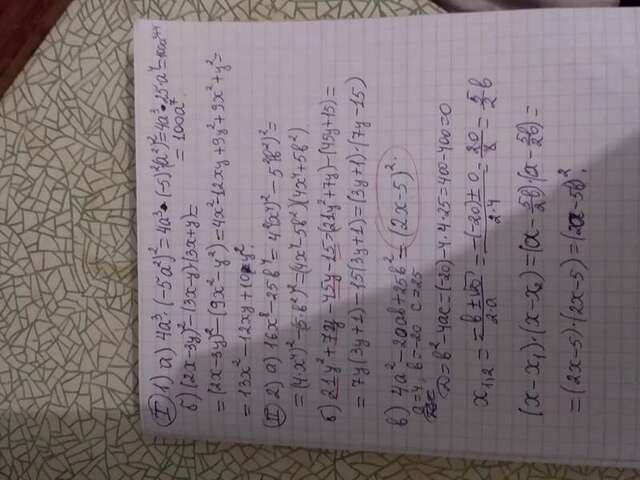 I 1) а) 4a³·(-5a²)² = 4a³·(-5)²(a²)² = 4a³·25a⁴ =
= 100a⁷.
б) (2x-3y)² - (3x-y)(3x+y) =
= (2x-3y)² - (9x² y²) = 4x² - 12xy + 9y² + 9x² + y² =
= 13x² - 12xy + 10y².
II 2) а) 16x⁸ - 25b⁴ =
= (4x⁴)² - (5b²)² = (4x⁴ - 5b²)(4x⁴ + 5b²)
б) 21y² + 7y - 45y - 15 = (21y² + 7y) - (45y + 15) =
= 7y(3y+1) - 15(3y+1) = (3y+1)·(7y-15)
в) 4a² - 20ab + 25b² = (2x-5)².
a=4, b=-20 c=25
D = b² - 4ac = (-20) - 4·4·25 = 400 - 400 = 0
x₁,₂ = -b±√D / 2a = -(-20)±0 / 2·4 = 20/8 = 5/2 b
(x-x₁)·(x-x₂) = (a - 5/2 b)(a - 5/2 b) =
= (2x-5)·(2x-5) = (2a-5b)².